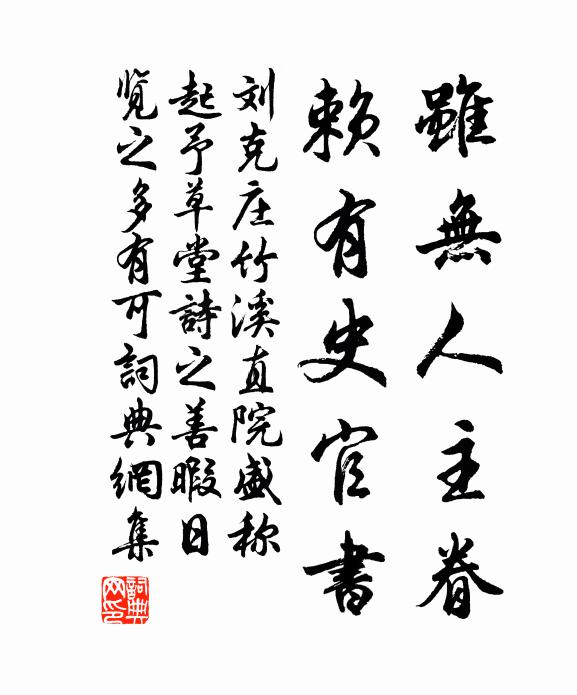 雖無人主眷
賴有史官書
刘克庄竹溪直院盛称
起予草堂詩之善暇日
覽之多有可詞典網集
詞典
网印